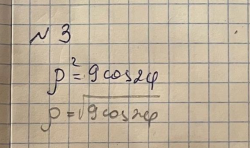 № 3
ρ² = 9cos2φ
ρ = √9cos2φ